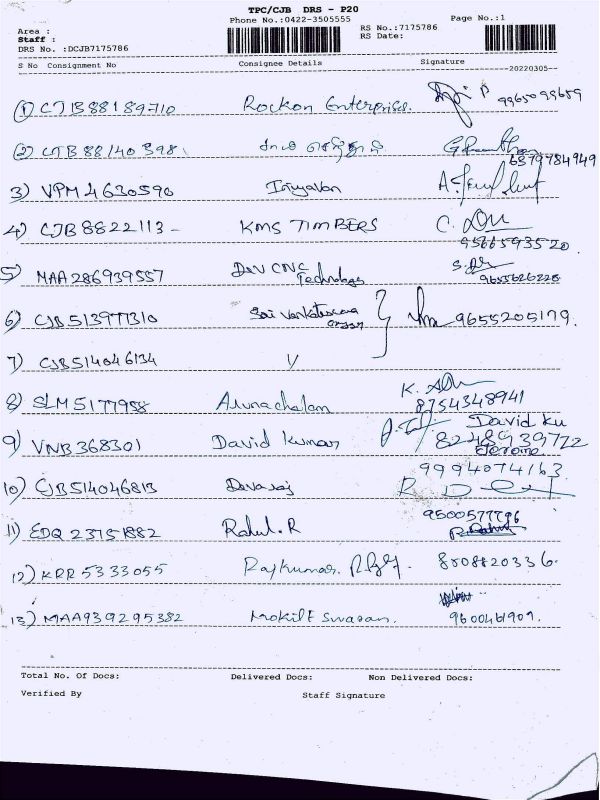 TPC/CJB DRS - P20
Phone No.:0422-3505555 Page No.:1
Area :
Staff :
DRS No. :DCJB7175786
RS No.:7175786
RS Date:
S No Consignment No Consignee Details Signature
20220305
1) CJB88189710 Rockon Enterprises. 9965099659
2) CJB88140398 6379784949
3) VPM4630590
4) CJB8822113- KMS TIMBERS
9566593520
5) MAA286939557 Dev CNC Technology 9655626228
6) CJB513977310 Sai Venkateswara 9655205179.
7) CJB514046134
8) SLM5177958 Arunachalam 8754348941
9) VNB368301 David Kumar David Ku
8248939722
Jerome
10) CJB514046813 Devaraj 9994074163
11) EDQ23751882 Rahul.R 9500577796
12) KRR5333055 Rajkumar. 8808820336.
13) MAA939295382 9600461909.
Total No. Of Docs: Delivered Docs: Non Delivered Docs:
Verified By Staff Signature